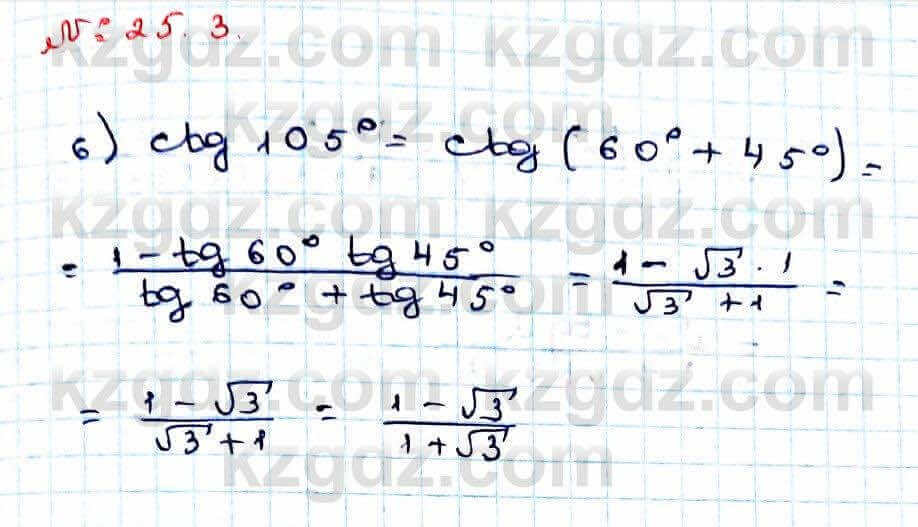 № 25.3.
kzgdz.com kzgdz.com
б) ctg 105° = ctg (60° + 45°) =
kzgdz.com
kzgdz.com kzgdz.com
= (1 - tg 60° tg 45°) / (tg 60° + tg 45°) = (1 - √3 · 1) / (√3 + 1) =
kzgdz.com
kzgdz.com kzgdz.com
= (1 - √3) / (√3 + 1) = (1 - √3) / (1 + √3)
kzgdz.com